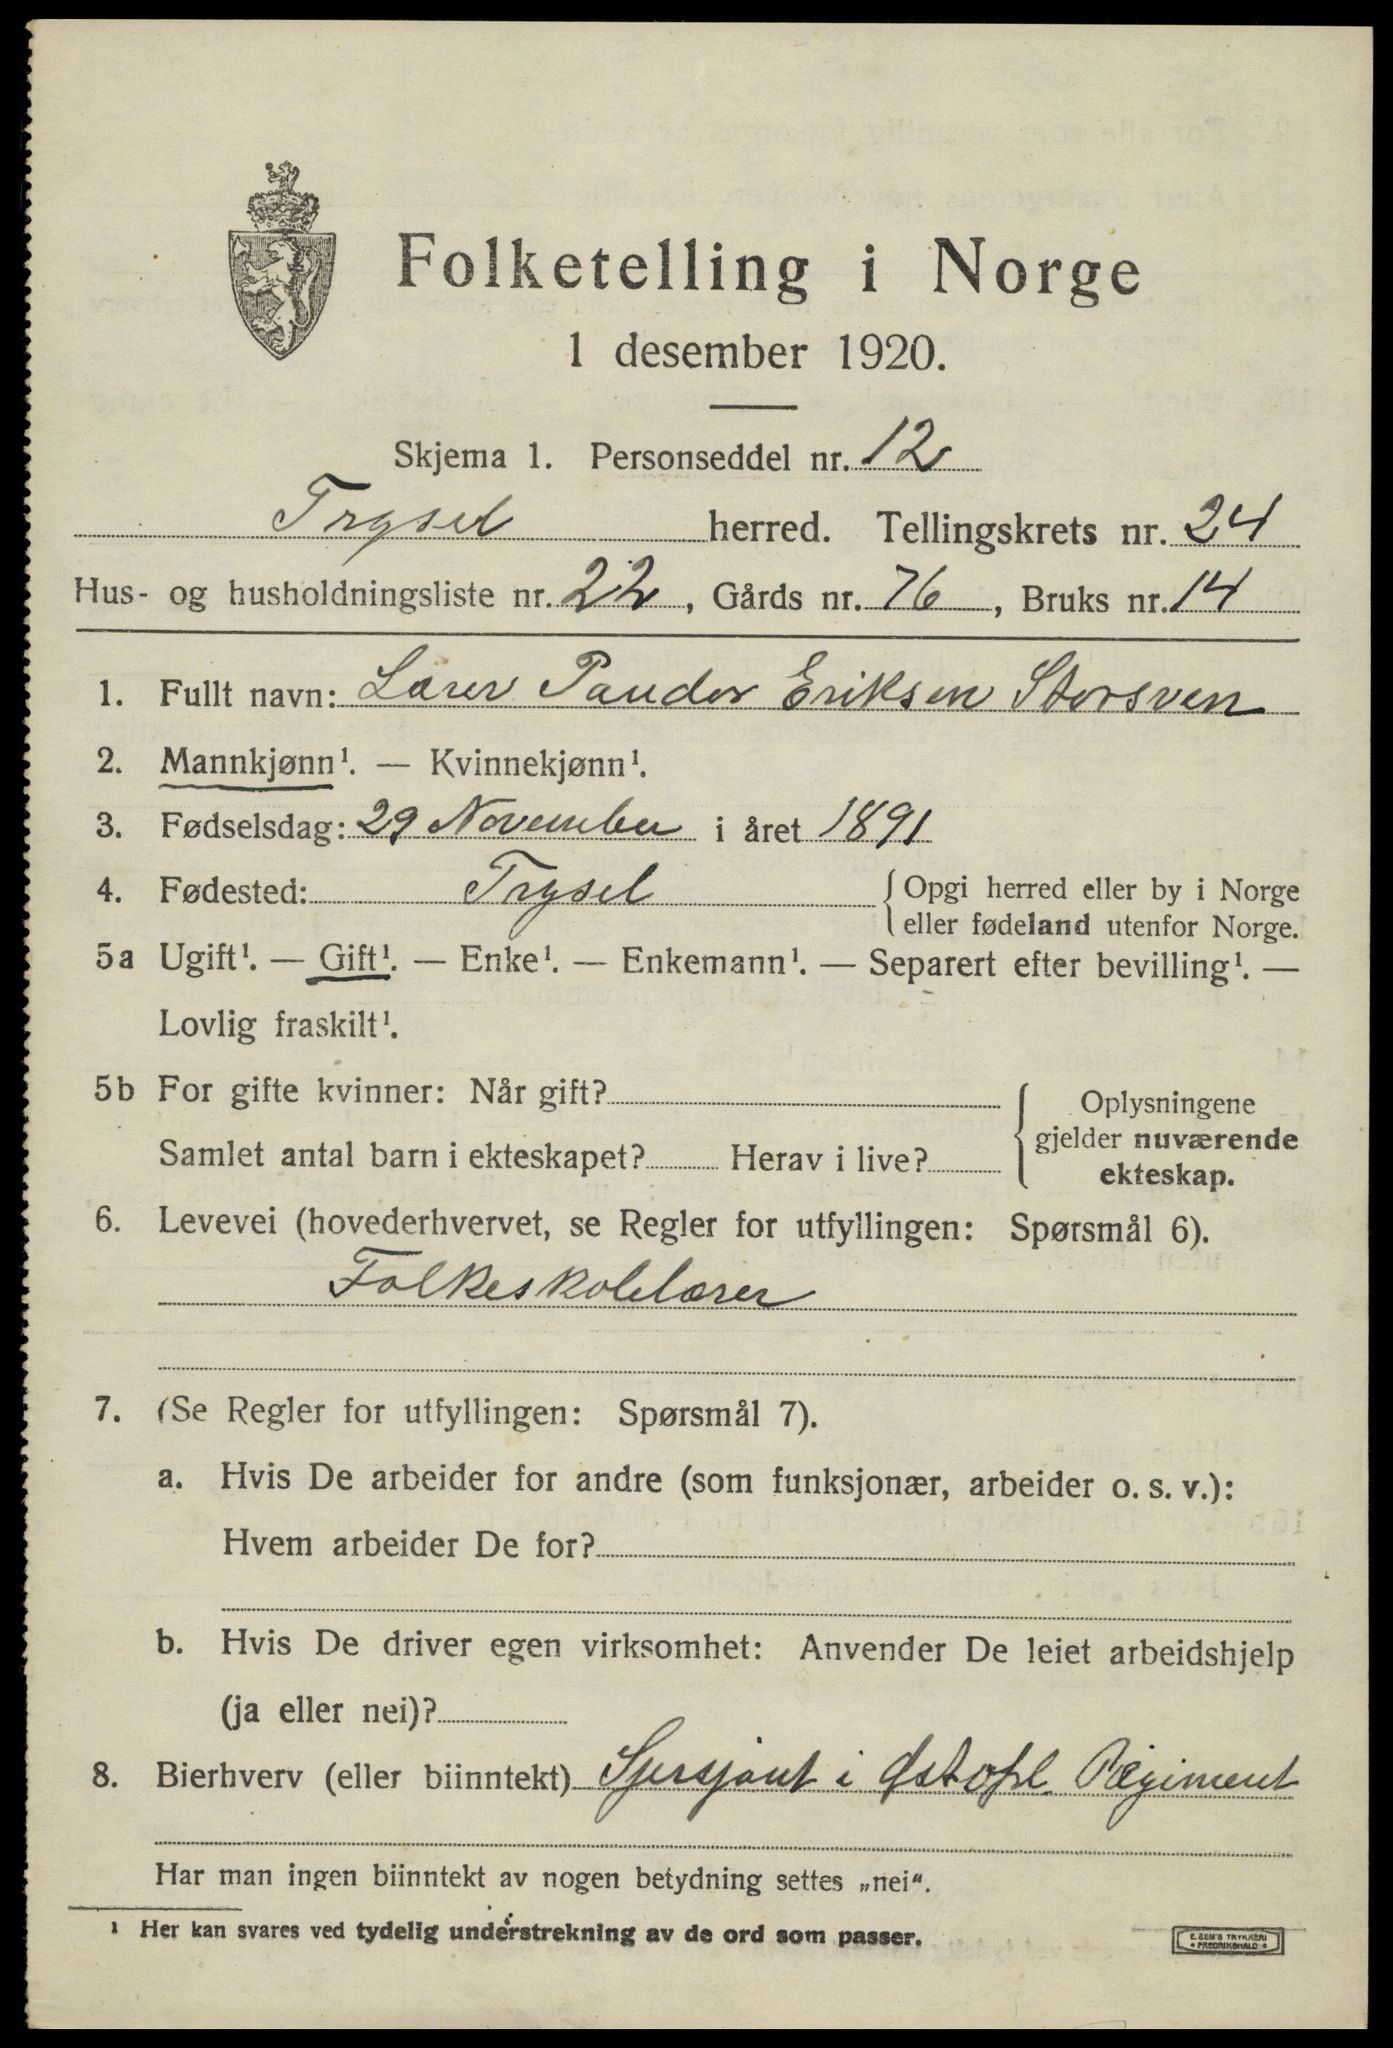 Folketelling i Norge
1 desember 1920.
Skjema 1. Personseddel nr. 12
Trysil herred. Tellingskrets nr. 24
Hus- og husholdningsliste nr. 22, Gårds nr. 76, Bruks nr. 14
1. Fullt navn: Lærer Peuder Eriksen Storsven
2. Mannkjønn¹. — Kvinnekjønn¹.
3. Fødselsdag: 29 November i året 1891
4. Fødested: Trysil {Opgi herred eller by i Norge
eller fødeland utenfor Norge.
5a Ugift¹. — Gift¹. — Enke¹. — Enkemann¹. — Separert efter bevilling¹. —
Lovlig fraskilt¹.
5b For gifte kvinner: Når gift?
Samlet antal barn i ekteskapet? Herav i live?
{Oplysningene
gjelder nuværende
ekteskap.
6. Levevei (hovederhvervet, se Regler for utfyllingen: Spørsmål 6).
Folkeskolelærer
7. (Se Regler for utfyllingen: Spørsmål 7).
a. Hvis De arbeider for andre (som funksjonær, arbeider o. s. v.):
Hvem arbeider De for?
b. Hvis De driver egen virksomhet: Anvender De leiet arbeidshjelp
(ja eller nei)?
8. Bierhverv (eller biinntekt) Sjersjant i Østopl. Regiment
Har man ingen biinntekt av nogen betydning settes „nei“.
¹ Her kan svares ved tydelig understrekning av de ord som passer.
E. SEM'S TRYKKERI
• FREDRIKSHALD •